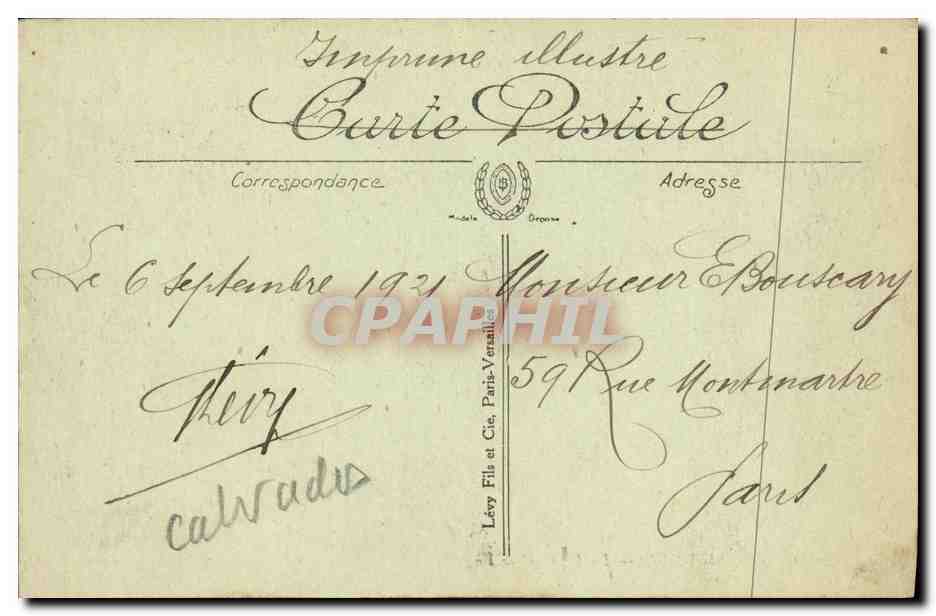 Imprimé illustré
Carte Postale
Correspondance
Adresse
Le 6 septembre 1921
Monsieur E Bouscary
59 Rue Montmartre
Paris
calvados
Lévy Fils et Cie, Paris-Versailles
CPAPHIL